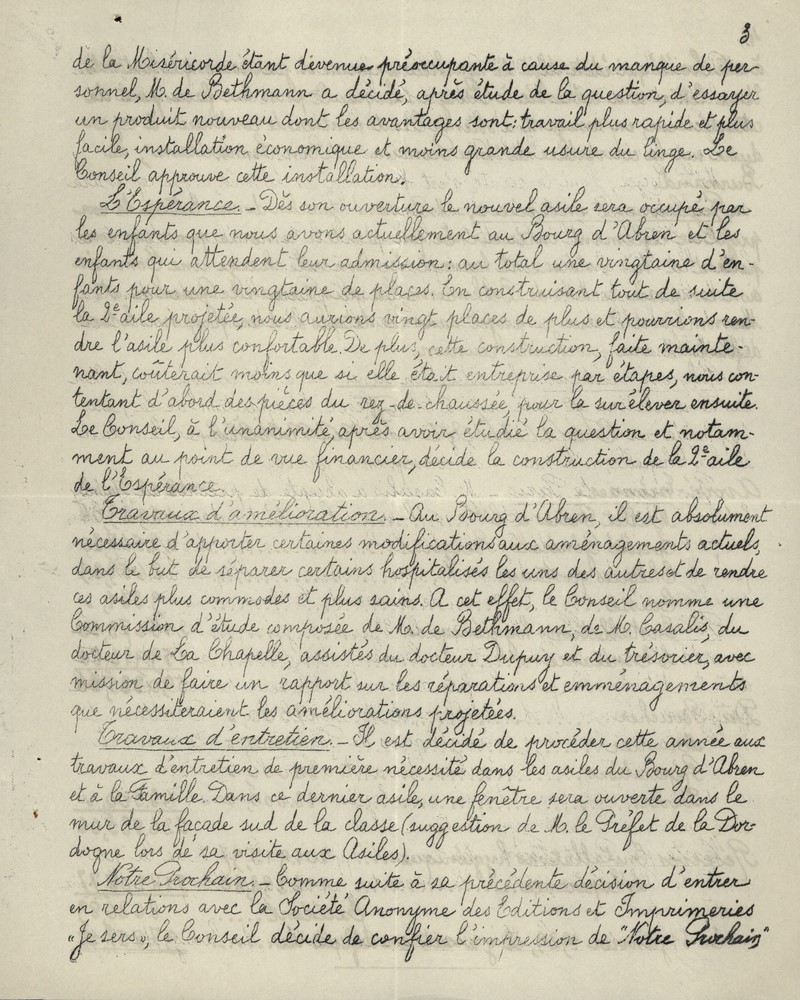 3
de la Miséricorde étant devenue préoccupante à cause du manque de per-
sonnel, M. de Bethmann a décidé, après étude de la question, d'essayer
un produit nouveau dont les avantages sont: travail plus rapide et plus
facile, installation économique et moins grande usure du linge. Le
Conseil approuve cette installation.
L'Espérance. - Dès son ouverture le nouvel asile sera occupé par
les enfants que nous avons actuellement au Bourg d'Abren et les
enfants qui attendent leur admission: au total une vingtaine d'en-
fants pour une vingtaine de places. En construisant tout de suite
la 2e aile projetée, nous aurions vingt places de plus et pourrions ren-
dre l'asile plus confortable. De plus, cette construction, faite mainte-
nant, coûterait moins que si elle était entreprise par étapes, nous con-
tentant d'abord des pièces du rez-de-chaussée, pour le surélever ensuite.
Le Conseil, à l'unanimité, après avoir étudié la question et notam-
ment au point de vue financier, décide la construction de la 2e aile
de l'Espérance.
Travaux d'amélioration. - Au Bourg d'Abren, il est absolument
nécessaire d'apporter certaines modifications aux aménagements actuels,
dans le but de séparer certains hospitalisés les uns des autres et de rendre
ces asiles plus commodes et plus sains. A cet effet, le Conseil nomme une
Commission d'étude composée de M. de Bethmann, de M. Casalis, du
docteur de La Chapelle, assistés du docteur Dupuy et du trésorier, avec
mission de faire un rapport sur les réparations et emménagements
que nécessiteraient les améliorations projetées.
Travaux d'entretien. - Il est décidé de procéder cette année aux
travaux d'entretien de première nécessité dans les asiles du Bourg d'Abren
et à la Famille. Dans ce dernier asile, une fenêtre sera ouverte dans le
mur de la façade sud de la classe (suggestion de M. le Préfet de la Dor-
dogne lors de sa visite aux Asiles).
Notre Prochain. - Comme suite à sa précédente décision d'entrer
en relations avec la Société Anonyme des Editions et Imprimeries
"Je sers", le Conseil décide de confier l'impression de "Notre Prochain"